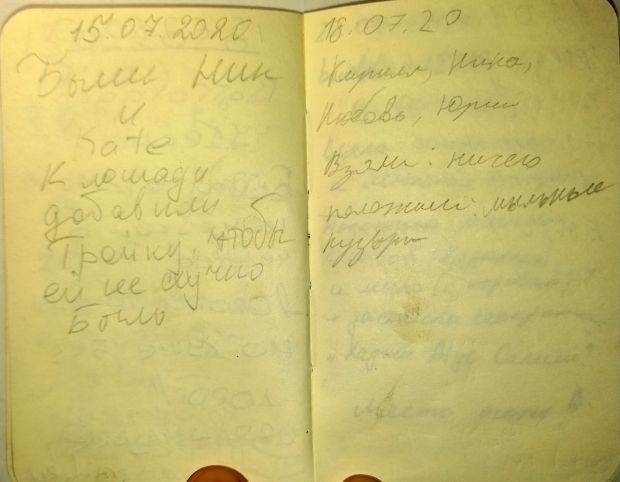 15.07.2020
Были Ник
и
Kate
К лошади
добавили
Тройку, чтобы
ей не скучно
было
18.07.20
Кирилл, Ника,
Любовь, Юрий
Взяли: ничего
положили: мыльные
пузыри